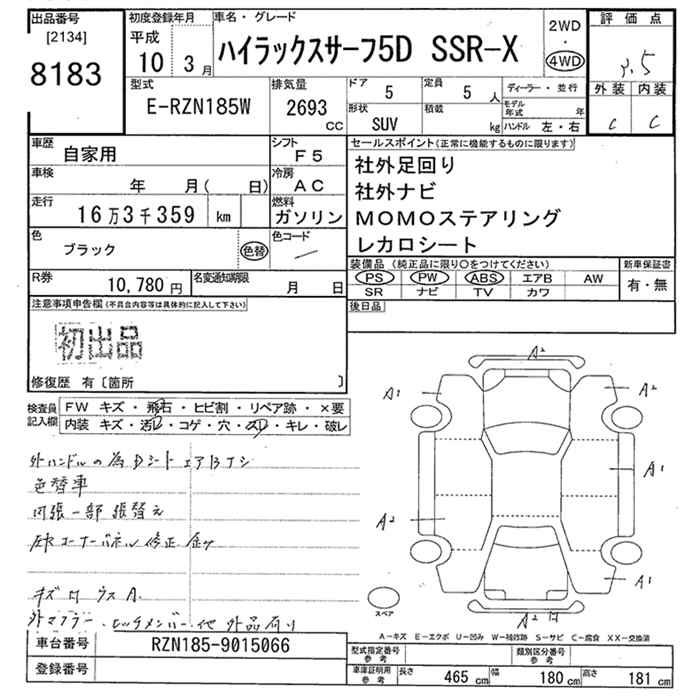 出品番号
[2134]
8183
初度登録年月
平成
10 3月
車名・グレード
ハイラックスサーフ5D SSR-X
2WD
・
4WD
評価点
3.5
外装 内装
C C
型式
E-RZN185W
排気量
2693
CC
ドア
5
定員
5 人
形状
SUV
積載
kg
ディーラー・並行
モデル
年式 年
ハンドル 左・右
車歴
自家用
シフト
F5
車検
年 月( 日)
冷房
AC
走行
16万3千359 km
燃料
ガソリン
色
ブラック
色替
色コード
R券
10,780円
名変通知期限
月 日
セールスポイント(正常に機能するものに限ります)
社外足回り
社外ナビ
MOMOステアリング
レカロシート
装備品(純正品に限り○をつけてください)
PS PW ABS エアB AW
SR ナビ TV カワ
新車保証書
有・無
後日品
注意事項申告欄(不具合内容等は具体的に記入して下さい)
初出品
修復歴 有〔箇所 〕
検査員
記入欄
FW キズ・飛石・ヒビ割・リペア跡・×要
内装 キズ・汚レ・コゲ・穴・スレ・キレ・破レ
外ハンドルの為Dシートエアバナシ
色替車
内張一部張替え
左Rコーナーパネル修正
キズ
A
外マフラー・ヒッチメンバー・他 外品有り
A2
A1
A2
A1
A2
A1
A2
スペア
A-キズ E-エクボ U-凹み W-補修跡 S-サビ C-腐食 XX-交換済
車台番号
RZN185-9015066
登録番号
型式指定番号
参考
類別区分番号
参考
車庫証明用
参考
長さ 465cm 幅 180cm 高さ 181cm